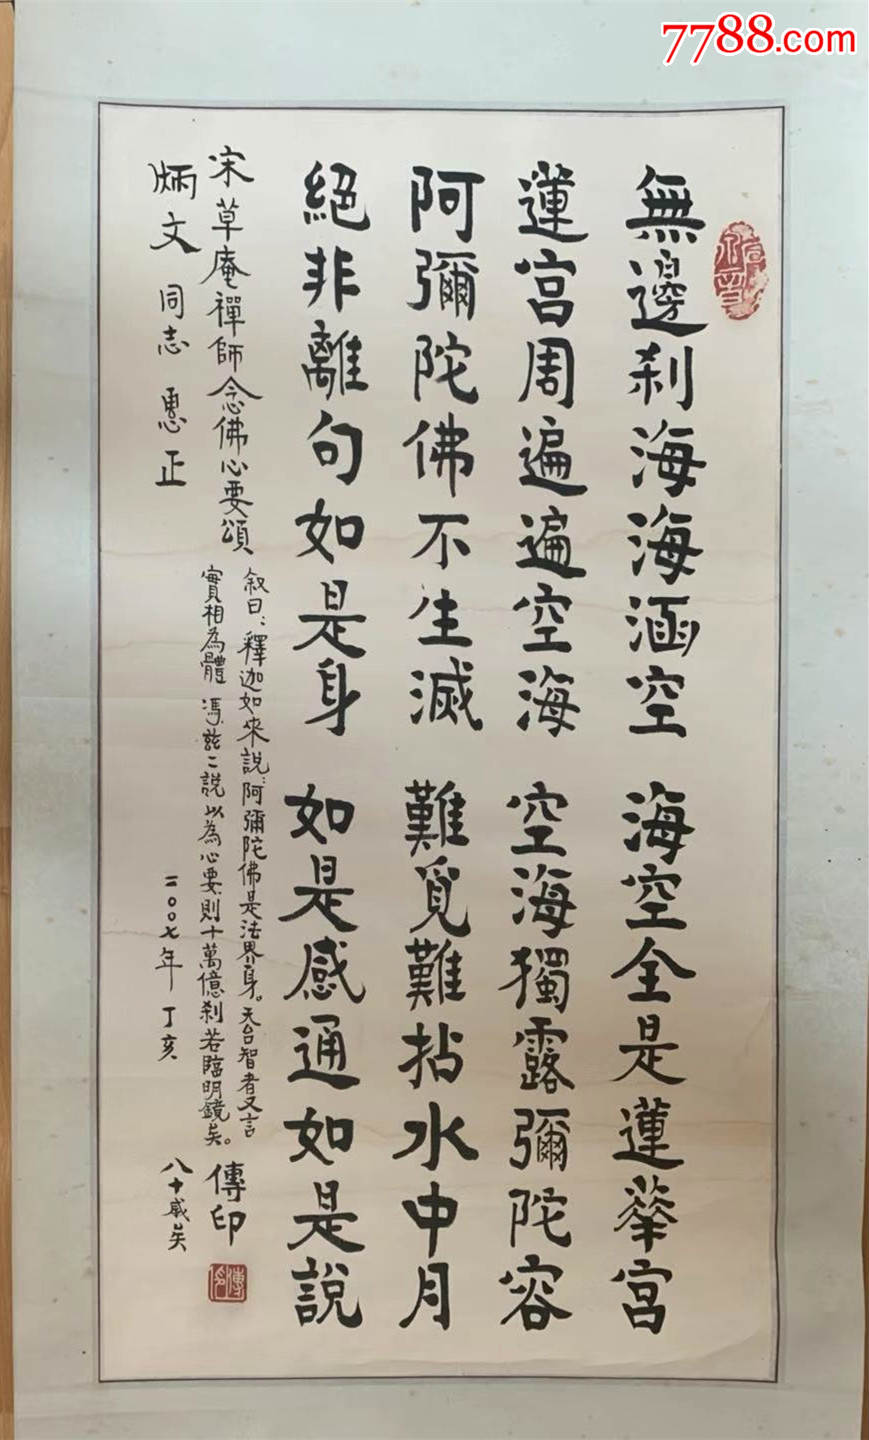 7788.com
無邊刹海海涵空 海空全是蓮華宮
蓮宮周遍遍空海 空海獨露彌陀容
阿彌陀佛不生滅 難覓難拈水中月
絕非離句如是身 如是感通如是說
宋草庵禪師念佛心要頌
叙曰:釋迦如來說:阿彌陀佛是法界身。天台智者又言
實相為體 馮茲二説以為心要則十萬億刹若臨明鏡矣。
炳文同志惠正
二〇〇七年 丁亥
傳印
八十歲矣
傳印